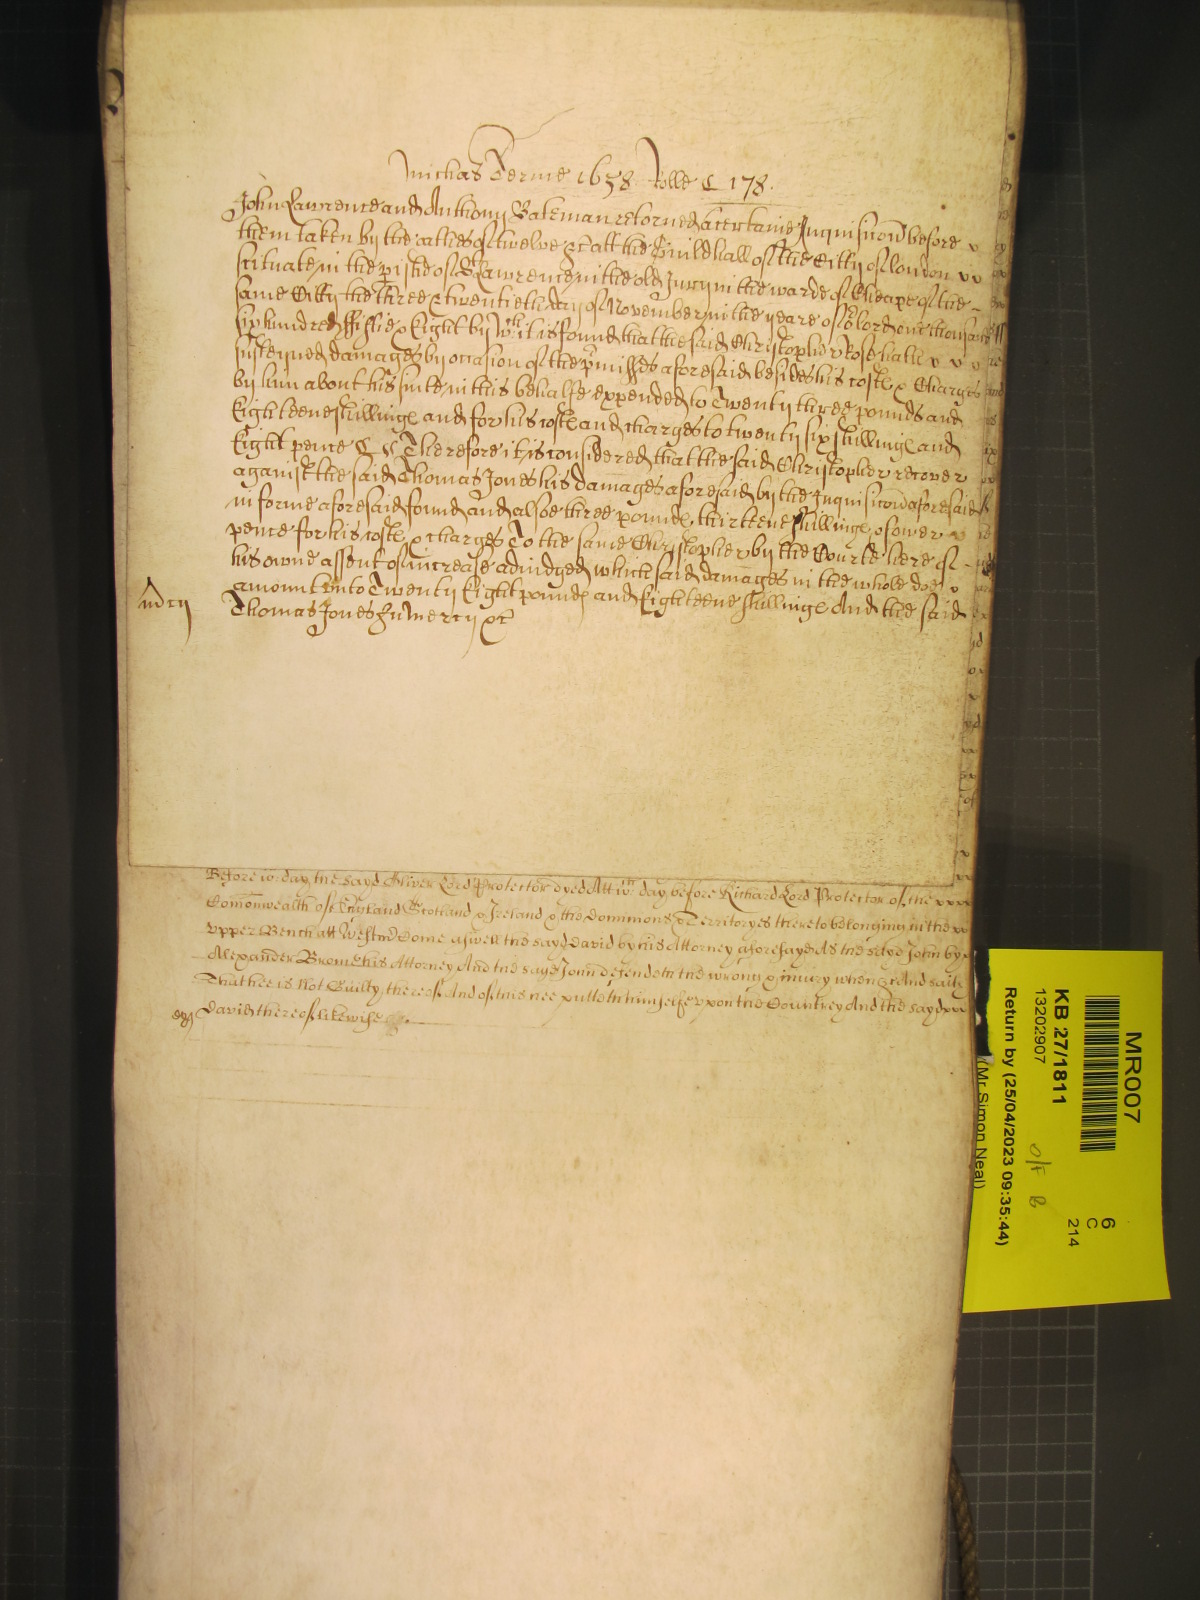 Michas Terme 1658 Rolle C 178.
John Lawrence and Anthony Bateman retorned a certaine Inquisicon before
them taken by the oathes of twelve &c att the Guildhall of the Citty of london
scituate in the pish of St Lawrence in the old Jury in the warde of Cheape of the
same Citty the three & twentieth day of November in the yeare of or lord one thousand
six hundred ffiftie & Eight by wch it is found that the said Christopher Rose hath
susteyned damages by occasion of the pmisses aforesaid besides his costs & Charges
by him about his suite in this behalfe expended to Twenty three pounds and
Eighteene shillings and for his costs and charges to twenty six shillings and
Eight pence Therefore it is considered that the said Christopher recover
against the said Thomas Jones his damages aforesaid by the Inquisicon aforesaid
in forme aforesaid found and alsoe three pounds thirteene shillings & fower
pence for his costs & charges To the same Christopher by the Courte here of
his owne assent of increase adiudged which said damages in the whole doe
amount unto Twenty Eight pounds and Eighteene shillings And the said
mcy
Thomas Jones in mercy &c
Before wch day the sayd Oliver Lord Protector dyed Att wch day before Richard Lord Protector of the
Comonwealth of England Scotland & Ireland & the Dominions & Territoryes thereto belonging in the
upper Bench att Westmr Come aswell the sayd David by his Attorney aforesayd As the sayd John by
Alexander Brome his Attorney And the sayd John defendeth the wrong & injury when &c And saith
That hee is Not Guilty thereof And of this hee putteth himselfe upon the Countrey And the sayd
David thereof likewise &c.
MR007
KB 27/1811
13202907
Return by (25/04/2023 09:35:44)
(Mr Simon Neal)
O/F B
6
C
214